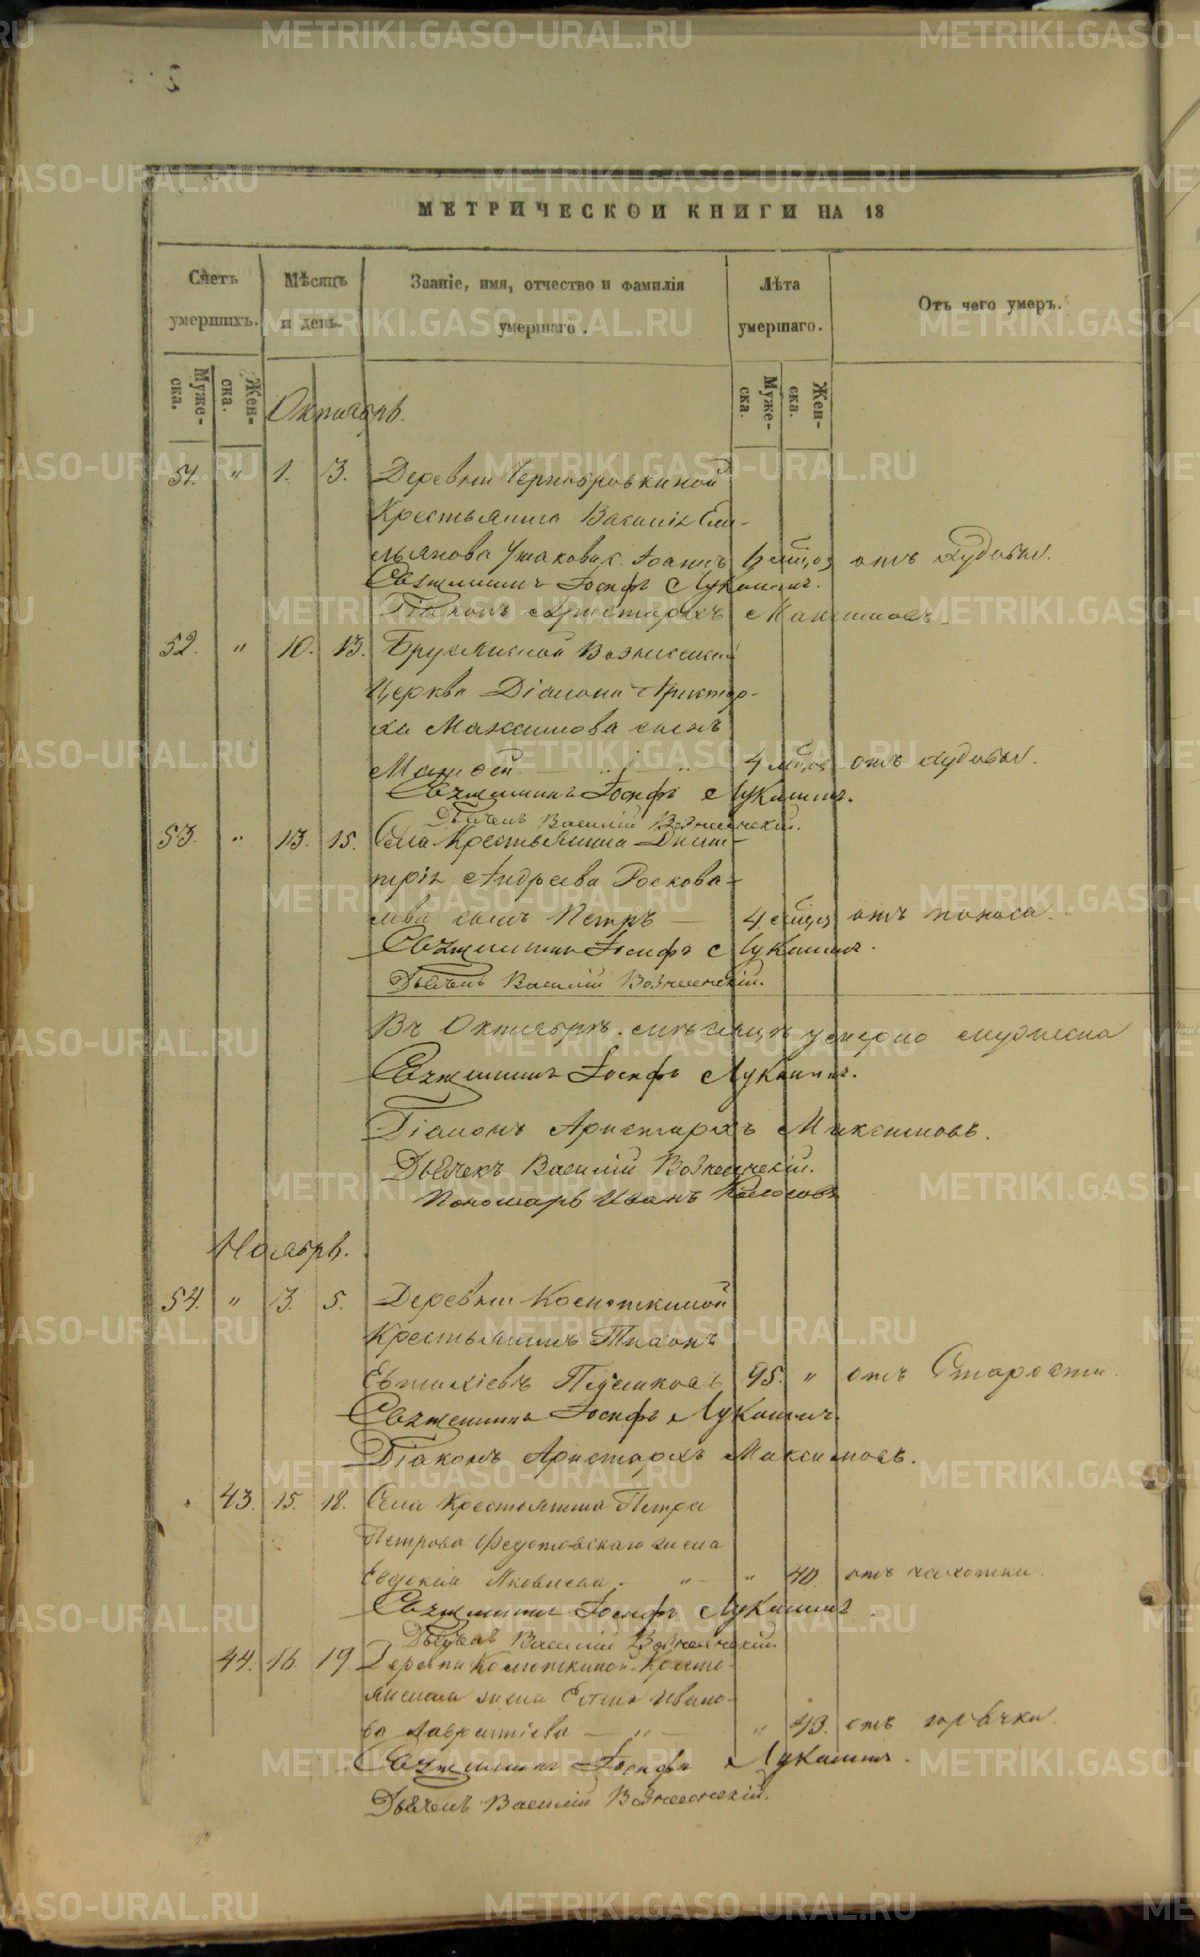 МЕТРИЧЕСКОЙ КНИГИ НА 18
Счетъ умершихъ.
Мѣсяцъ и день.
Званіе, имя, отчество и фамилія умершаго.
Лѣта умершаго.
Отъ чего умеръ.
Мужеска. Женска.
Мужеска. Женска.
Октябрь.
51. " 1. 3. Деревни Чернобровкиной
Крестьянина Василія Еми-
льянова Ушакова с. Іоаннъ 6 мѣсяц отъ худобы.
Священникъ Іосифъ Лукашинъ.
Діаконъ Аристархъ Максимовъ.
52. " 10. 13. Бруснянской Вознесенской
Церкви Діакона Аристар-
ха Максимова сынъ
4 мѣсяц отъ худобы.
Священникъ Іосифъ Лукашинъ.
Дьячекъ Василій Вознесенскій.
53. " 13. 15. Села Крестьянина Дмит-
рія Андреева
сынъ Петръ — 4 мѣсяц отъ поноса.
Священникъ Іосифъ Лукашинъ.
Дьячекъ Василій Вознесенскій.
Въ Октябрѣ мѣсяцѣ умерло мужеска
Священникъ Іосифъ Лукашинъ.
Діаконъ Аристархъ Максимовъ.
Дьячекъ Василій Вознесенскій.
Пономарь Иванъ
Ноябрь.
54. " 3. 5. Деревни
Крестьянинъ Тихонъ
Евтихіевъ 95. " отъ Старости.
Священникъ Іосифъ Лукашинъ.
Діаконъ Аристархъ Максимовъ.
" 43. 15. 18. Села Крестьянина Петра
Петрова Федотовскаго жена
Евдокія Яковлева — " — " 40. отъ чахотки.
Священникъ Іосифъ Лукашинъ.
Дьячекъ Василій Вознесенскій.
44. 16. 19. Деревни Кресть-
янина жена Ивано-
ва Лаврентіева — " — " 43. отъ горячки.
Священникъ Іосифъ Лукашинъ.
Дьячекъ Василій Вознесенскій.
METRIKI.GASO-URAL.RU